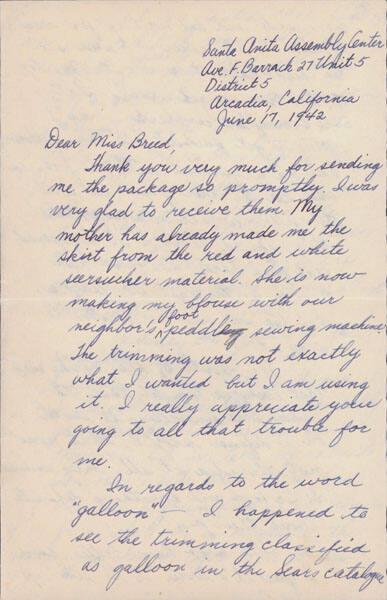 Santa Anita Assembly Center
Ave. F. Barrack 27 Unit 5
District 5
Arcadia, California
June 17, 1942
Dear Miss Breed,
Thank you very much for sending
me the package so promptly. I was
very glad to receive them. My
mother has already made me the
skirt from the red and white
seersucher material. She is now
making my blouse with our
foot
neighbor's peddle sewing machine.
The trimming was not exactly
what I wanted but I am using
it. I really appreciate your
going to all that trouble for
me.
In regards to the word
"galloon" — I happened to
see the trimming classified
as galloon in the Sears catalogue